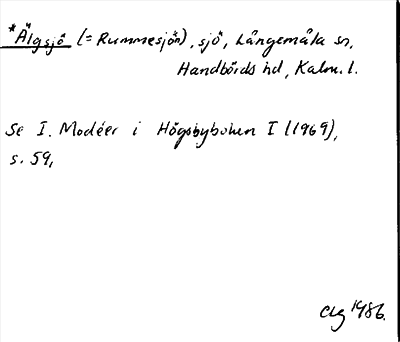 *Älgsjö (= Rummesjön), sjö, Långemåla sn,
Handbörds hd, Kalm. l.
Se I. Modéer i Högsbyboken I (1969),
s. 59,
1986.